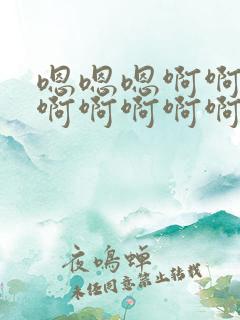 嗯嗯嗯啊啊
啊啊啊啊啊
夜鸣蝉
未经同意禁止转载